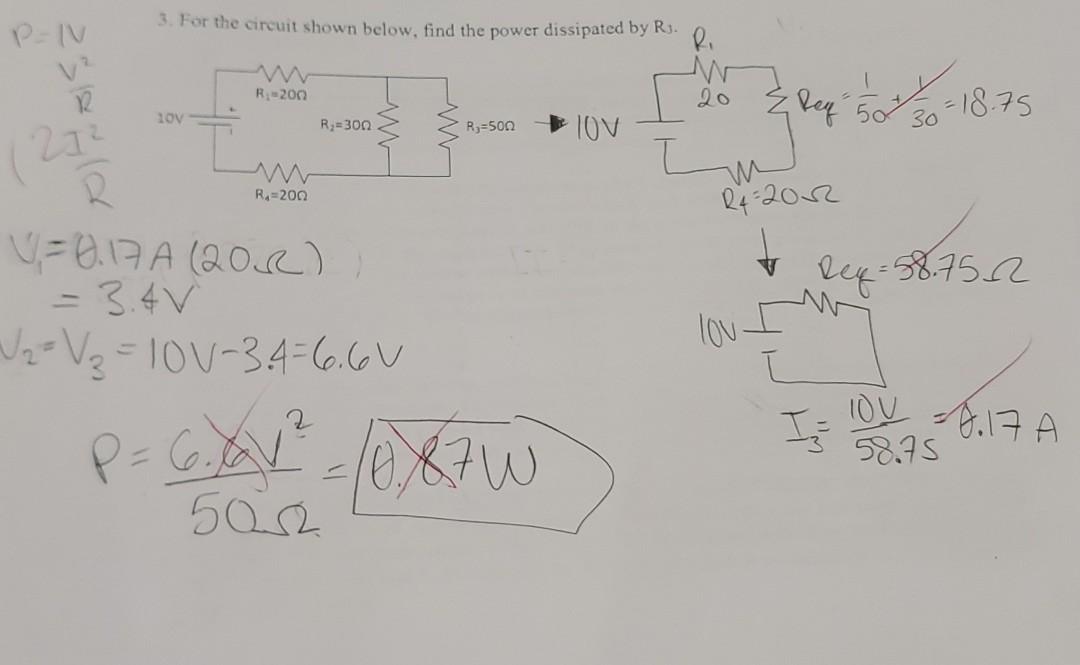 3. For the circuit shown below, find the power dissipated by R₃.
P=IV
V²
R
(2I²
R
R₁=20Ω
10V
+
R₂=30Ω
R₃=50Ω
R₄=20Ω
R₁
20
10V
Req = 1/50 + 1/30 = 18.75
R4=20Ω
Req = 58.75Ω
10V
I₃ = 10V/58.75 = 0.17 A
V₁ = 0.17A (20Ω)
= 3.4V
V₂=V₃ = 10V-3.4=6.6V
P = 6.6V²/50Ω = 0.87W